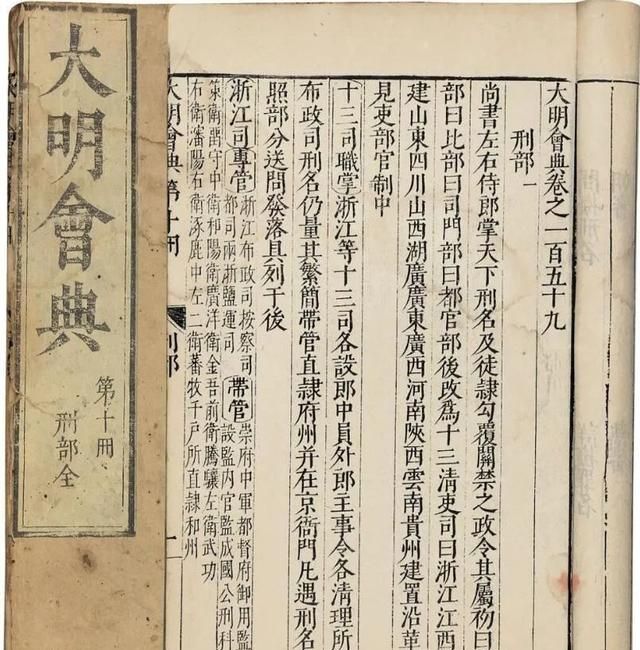 大明會典
第十冊
刑部全
大明會典卷之一百五十九
刑部一
尚書左右侍郎掌天下刑名及徒隸勾覆關禁之政令其屬初曰
部曰比部曰司門部曰都官部後改爲十三清吏司曰浙江江西
建山東四川山西湖廣廣東廣西河南陝西雲南貴州建置沿革
見吏部官制中
十三司職掌浙江等十三司各設郎中員外郎主事令各清理所
布政司刑名仍量其繁簡帶管直隸府州并在京衙門凡遇刑名
照部分送問發落具列于後
浙江司專管
浙江布政司按察司
都司兩浙鹽運司
帶管
崇府中軍都督府御用監
設監內官監成國公刑科
策衛留守中衛和陽衛廣洋衛金吾前衛騰驤左衛武功
右衛瀋陽右衛涿鹿中左二衛蕃牧千戶所直隸和州
大明會典第十冊
刑部
一